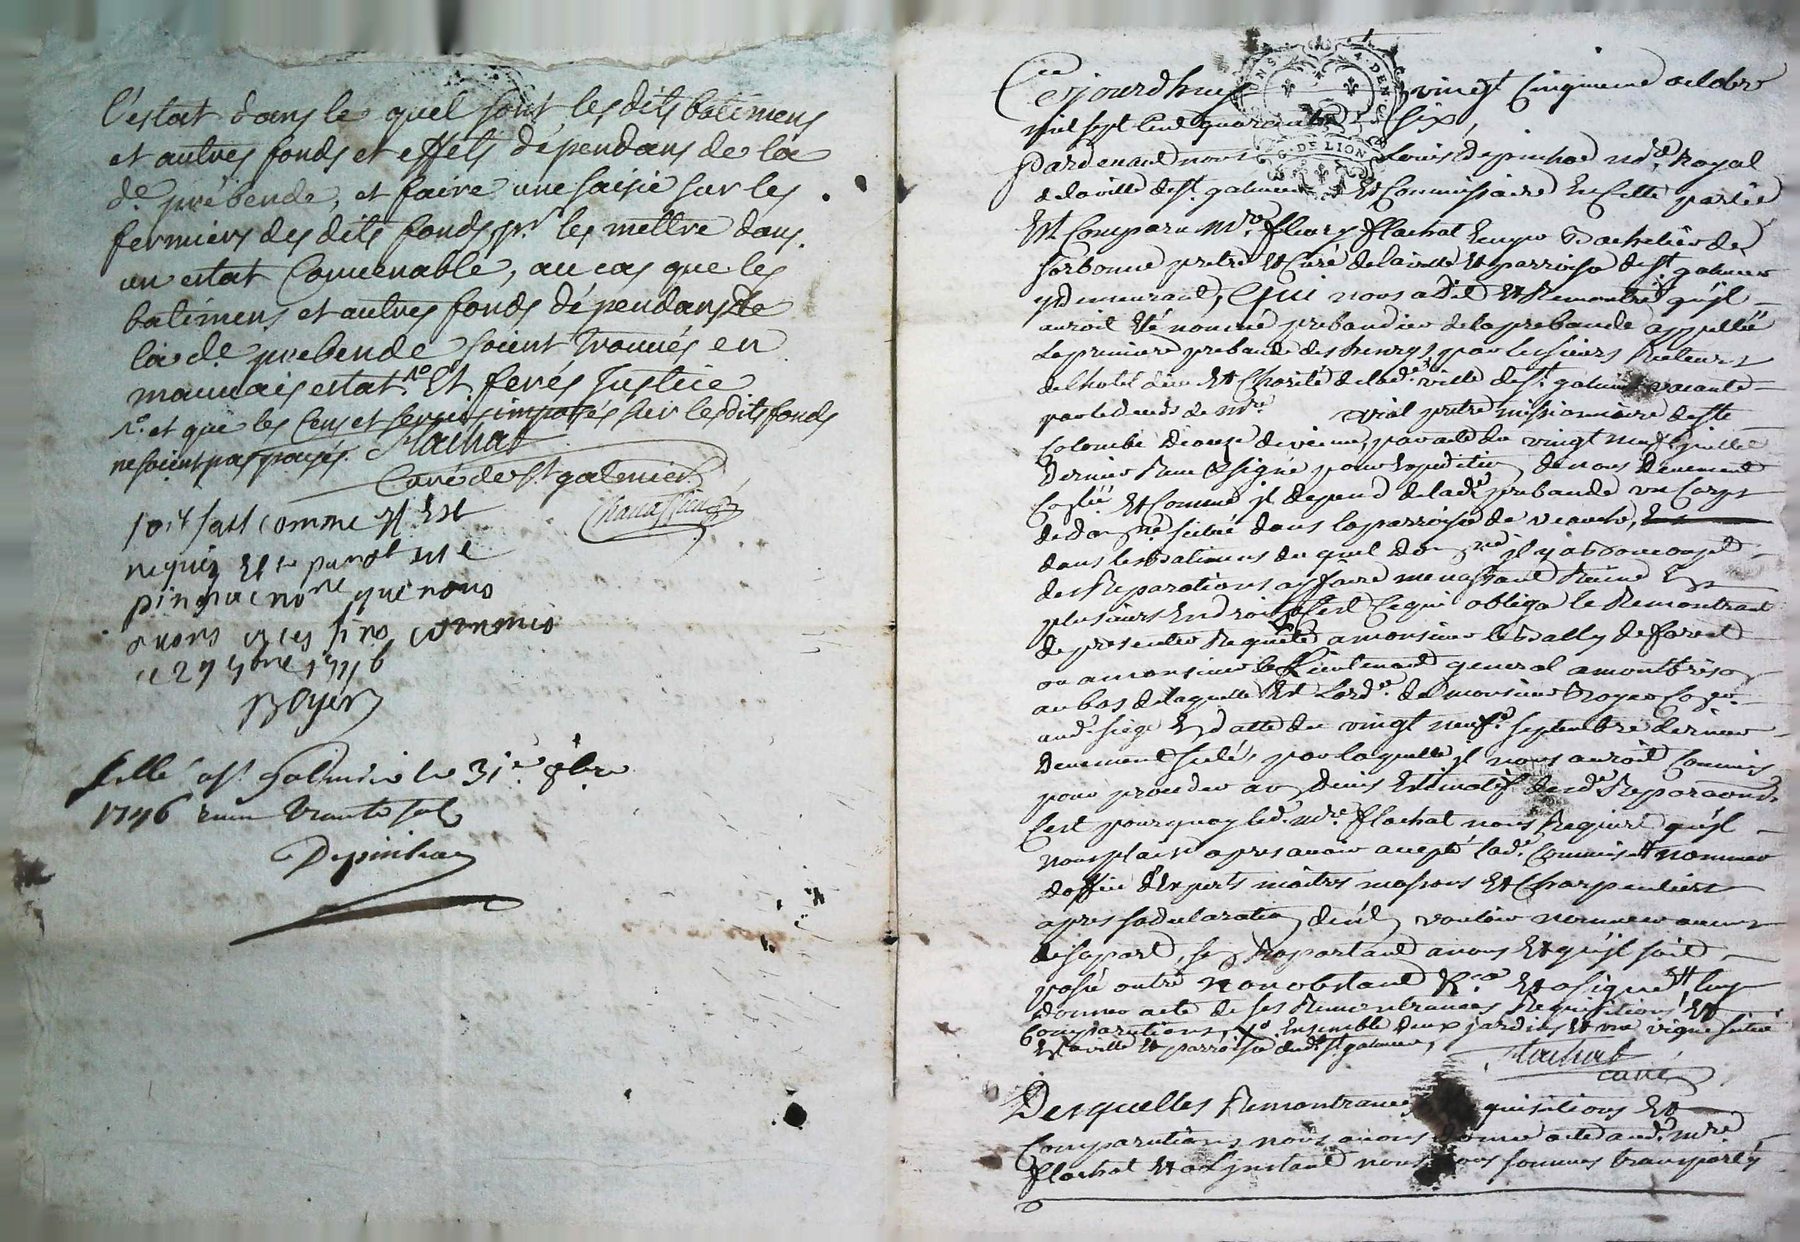 l'estat dans le quel sont les dits batimens
et autres fonds et effets dépendans de la
de. prébende, et faire une saisie sur les
fermiers des dits fonds, pr. les mettre dans
un estat convenable, au cas que les
batimens et autres fonds dépendans de
la de. prebende soient trouvés en
mauvais estat. ro Et ferés Justice
ro. et que les cens et servis imposés sur les dits fonds
ne soient pas payés. Flachat
Curé de St galmier
Chanassieu
soit fait comme Il Est
requis Et
que nous
avons a ces fins commis
ce 29 7bre 1746
Boyer
scellé a St. Galmier le 31e. 8bre
1746 trante sols
Depinhac
GEN DE LION
Cejourdhuy vingt cinquieme octobre
mil sept cent quarante six,
pardevant nous Louis depinhac nore. Royal
de la ville de St. galmier Et Commissaire En Cette partie
Est Comparu mre. fleury flachat Bachelier de
sorbonne pretre Et Curé de la ville Et parroisse de St. galmier
y demeurant, Qui nous a Dit Et Remontré qu'jl
auroit Eté nommé prebandier de la prebande appellée
La premiere prebande des henrys, par les sieurs Recteurs
de l'hotel dieu Et Charité de lade. ville de St. galmier vacante
par le deceds de mre. vial pretre missionnaire de ste
Colombe Diocese de vienne, par acte du vingt neuf juillet
Dernier signé pour Expedition de nous Duement
Et Comme jl depend de lade. prebande un Corps
de domne. situé dans la parroisse de veauche,
dans les batimens du quel domne. jl y a Beaucoup
des Reparations a y faire menassant Ruine En
plusieurs Endroits, C'est Ce qui obligea le Remontrant
de presenter Requete a monsieur le Bally de forest
ou a monsieur le Lieutenant general a montbrison
au bas de laquelle Est Lorde. de monsieur Boyer
aud. siege En datte du vingt neufe. septembre dernier
Duement scelée, par laquelle jl nous auroit Commis
pour proceder au Devis Estimatif desde. Reparaons.
C'est pourquoy led. mre. flachat nous Requiert qu'jl
nous plaise apres avoir accepté lade. Commison nommer
d'office d'Experts maitres massons Et Charpentiers
apres sa declaration de n'en vouloir nommer aucuns
de sa part, se Raportant a nous Et qu'jl soit
passé outre nonobstant Et a signé Et luy
donner acte de ses Remontrances Requisitions Et
Comparutions, ro Ensemble Deux jardins Et une vigne situé
En la ville Et parroisse dud. St. galmier,
Flachat
curé
Desquelles Remontrances quisitions Et
Comparutions nous avons donné acte aud. mre
flachat Et a L'jnstant nous nous sommes transportés